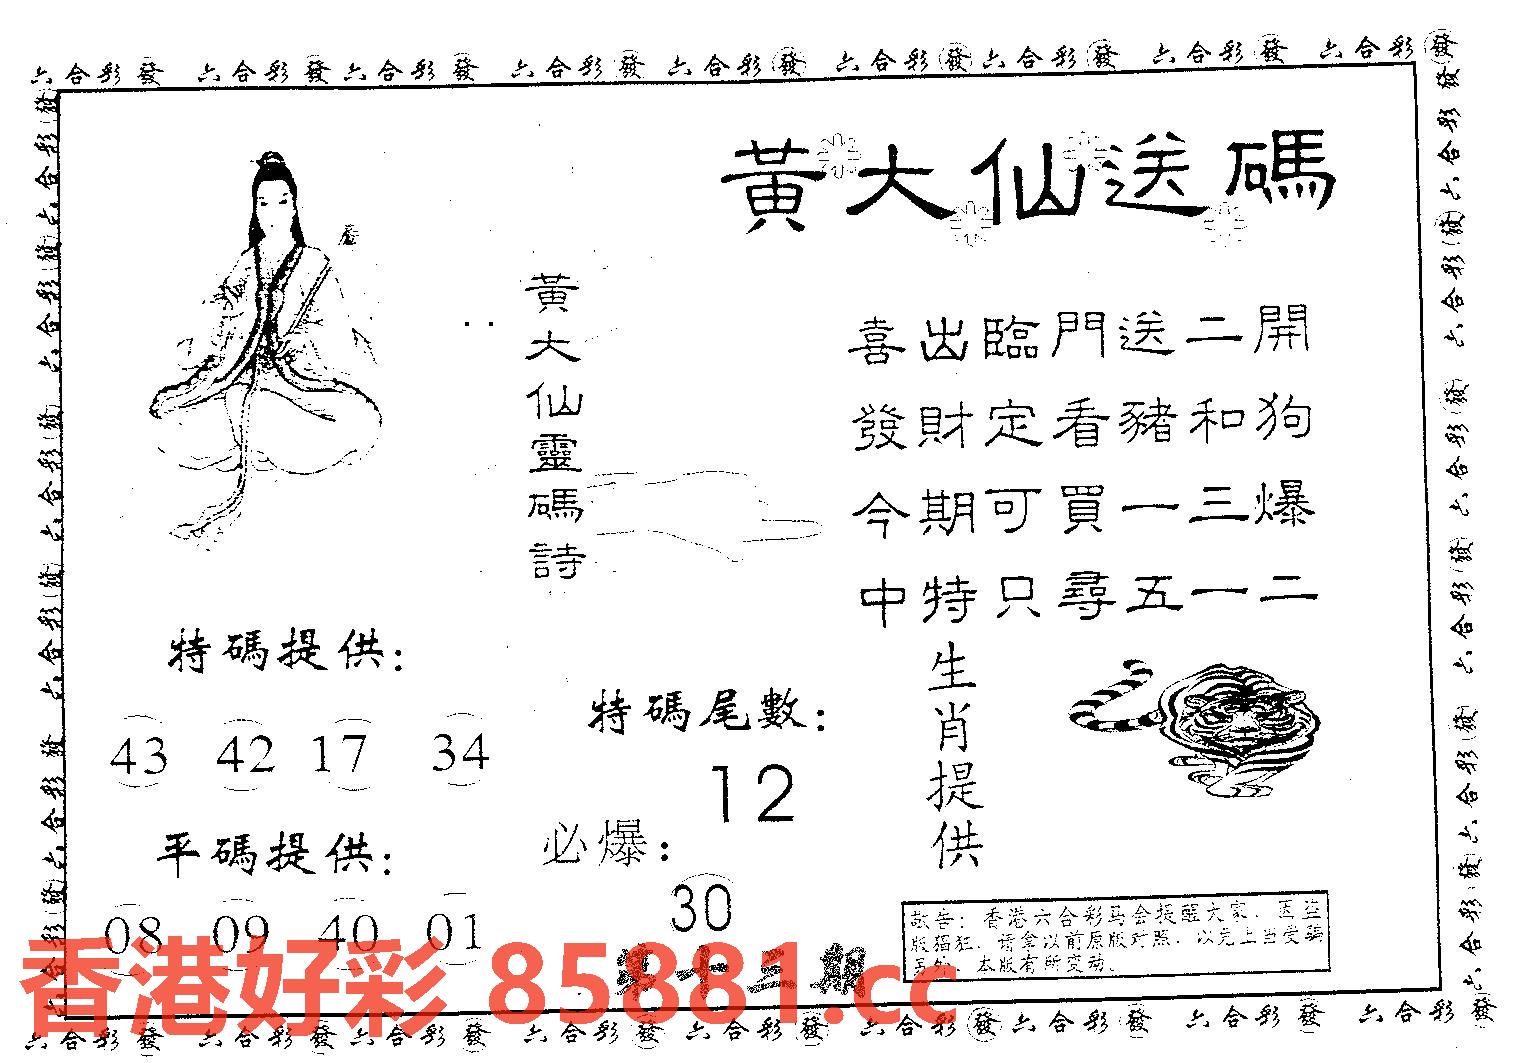 六合彩發 六合彩發 六合彩發 六合彩發 六合彩發 六合彩發 六合彩發 六合彩發 六合彩發
黃大仙送碼
黃大仙靈碼詩
喜出臨門送二開
發財定看豬和狗
今期可買一三爆
中特只尋五一二
特碼提供:
43 42 17 34
平碼提供:
08 09 40 01
特碼尾數:
12
必爆:
30
生肖提供
敬告: 香港六合彩马会提醒大家.因盗
版猖狂.请拿以前原版对照.以免上当受骗
另外.本版有所变动.
第十二期
香港好彩 85881.cc
六合彩發 六合彩發 六合彩發 六合彩發 六合彩發 六合彩發 六合彩發 六合彩發 六合彩發